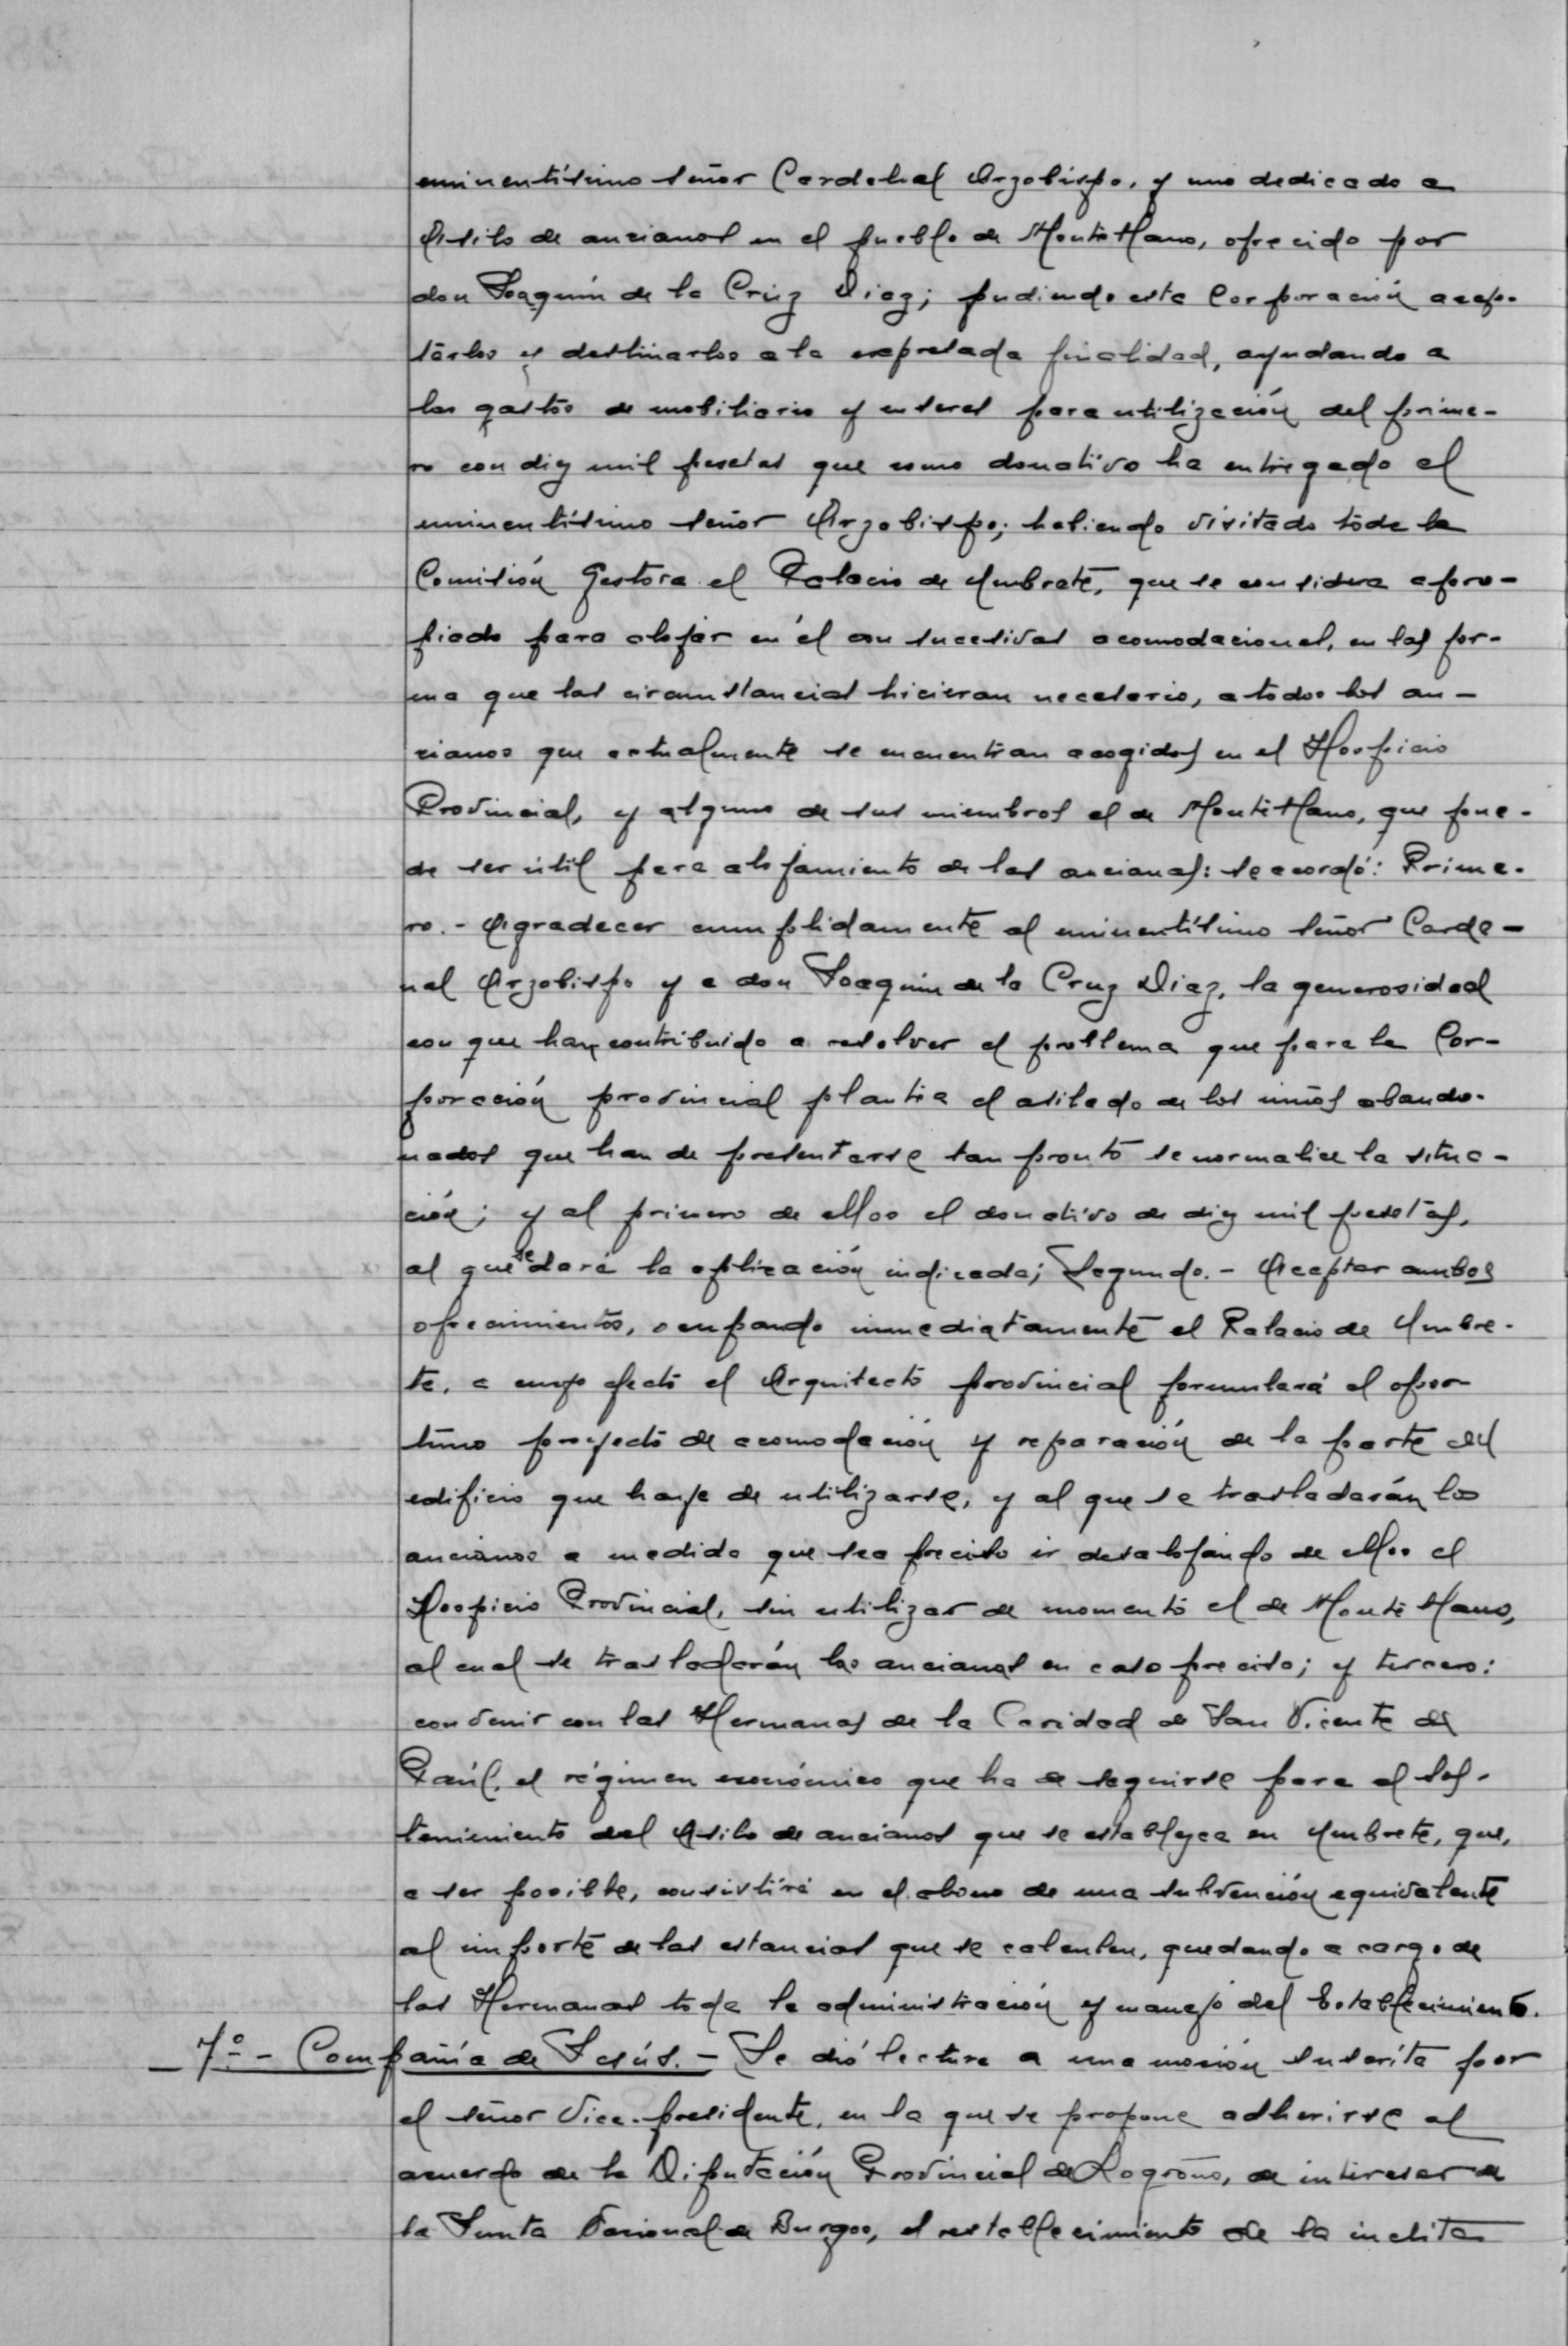 eminentísimo señor Cardenal Arzobispo, y uno dedicado a
Asilo de ancianos en el pueblo de Montellano, ofrecido por
don Joaquín de la Cruz Diaz; pudiendo esta Corporación acep-
tarlos y destinarlos a la expresada finalidad, ayudando a
los gastos de mobiliario y enseres para utilización del prime-
ro con diez mil pesetas que como donativo ha entregado el
eminentísimo señor Arzobispo; habiendo visitado toda la
Comisión Gestora el Palacio de Umbrete, que se considera apro-
piado para alojar en él con sucesivas acomodaciones, en las for-
ma que las circunstancias hicieran necesario, a todos los an-
cianos que actualmente se encuentran acogidos en el Hospicio
Provincial, y alguno de sus miembros el de Montellano, que pue-
de ser útil para alojamiento de las ancianas: se acordó: Prime-
ro.- Agradecer cumplidamente al eminentísimo señor Carde-
nal Arzobispo y a don Joaquin de la Cruz Diaz, la generosidad
con que han contribuido a resolver el problema que para la Cor-
poración provincial plantea el asilado de los niños abando-
nados que han de presentarse tan pronto se normalice la situa-
ción; y al primero de ellos el donativo de diez mil pesetas,
al que se dará la aplicación indicada; Segundo.- Aceptar ambos
ofrecimientos, ocupando inmediatamente el Palacio de Umbre-
te, a cuyo efecto el Arquitecto provincial formulará el opor-
tuno proyecto de acomodación y reparación de la parte del
edificio que haya de utilizarse, y al que se trasladarán los
ancianos a medida que sea preciso ir desalojando de ellos el
Hospicio Provincial, sin utilizar de momento el de Montellano,
al cual se trasladarán las ancianas en caso preciso; y tercero:
convenir con las Hermanas de la Caridad de San Vicente de
Paúl, el régimen económico que ha de seguirse para el sos-
tenimiento del Asilo de ancianos que se establezca en Umbrete, que,
a ser posible, consistirá en el abono de una subvención equivalente
al importe de las estancias que se calculen, quedando a cargo de
las Hermanas toda la administración y manejo del Establecimiento.
7º.- Compañía de Jesús.- Se dió lectura a una moción suscrita por
el señor Vice-presidente, en la que se propone adherirse al
acuerdo de la Diputación Provincial de Logroño, de interesar de
la Junta Nacional de Burgos, el restablecimiento de la inclita